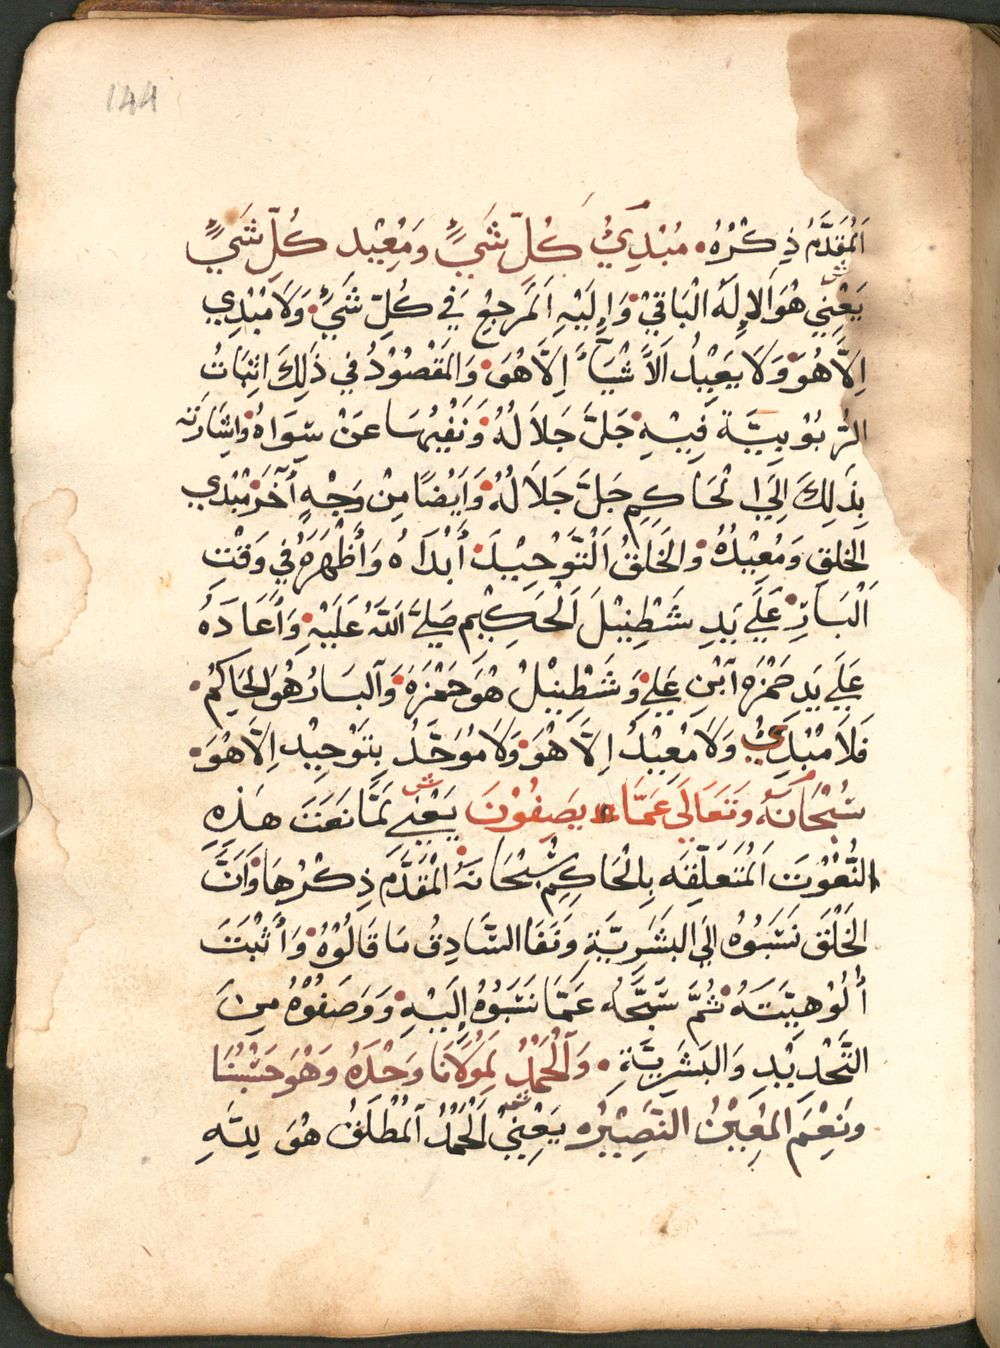 144
اَلمُقَدَّمُ ذِكْرُهُ. مُبْدِيُ كُلِّ شَيْءٍ وَمُعِيْد كُلِّ شَيْءٍ
يَعْنِي هُوَ اَلإِلَهُ الْبَاقِيْ وَاِلَيْهِ اَلمَرجِعِ فِي كُلِّ شَيْءٍ وَلَا مُبْدِي
اِلَّا هُوَ وَلَا يعَيِيْدُ اَلاَشْيَآءَ اِلَّا هُوَ وَالمَقْصُوْدُ فِي ذَلِكَ اثِبَاتُ
الرُّبُوْبِيَّة فِيْهِ جَلَّ جَلاَلُهُ وَنَفْيُهَا عَنْ سِوَاهُ وَاِشَارَتَه
بِذَلِكَ اِلَى الحَاكِمِ جَلَّ جَلاَلُهُ وَاَيْضًا مِنْ وَجْهٍ آخَرَ مُبْدِي
الخلقِ وَمُعِيْدُهُ والخَلقُ اَلْتَّوْحِيْدَ أَبْدَاهُ وَأَظْهَرَهُ فِي وَقْتِ
اَلْبَارِ عَلَى يَدِ شَطْنِيْلَ اَلْحَكِيْمِ صَلَى اللهُ عَلَيْهِ وَأَعَادَهُ
عَلَى يَدِ حَمْزَه آبْنِ عَلِي وَشَطْنِيْلُ هُوَ حَمْزَةَ وَآلبَارُ هُوَ الحَاكِمُ.
فَلَا مُبْدِيُ وَلَا مُعِيْدُ اِلَّا هُوَ وَلَا مُوَحَّدُ بِتَوْحِيْدِ اِلَّا هُوَ.
سُبْحَانَهُ وَتَعَالَى عَمَّا يصَفِوُنَ يَعْنِي لَمَّا نَعَتَ هَذِهِ
النُّعُوْتَ اَلمُتَعَلِّقَه بِالْحَاكِمِ سُبْحَانَهُ الْمُقَدَّمَ ذِكْرُهَا وَاَنَّ
الخَلْقَ نَسَبُوْهُ اِلَى البشَرِيَّةِ وَنَفَا الصَّادِقُ مَا قَالُوْهُ وَأَثْبَتَ
أُلُوْهِيَّتَهُ ثُمَّ سَبَّحَهُ عَمَّا نَسَبُوْهُ اِلَيْهِ وَوَصَفُوْهُ مِنَ
التَّحْدِيْدِ وَالبَشَرِيَّةِ. وَآلْحَمْدُ لِمَوْلَانَا وَحْدَهُ وَهْوَ حَسْبُنَا
وَنِعْمَ المُعِيْنُ النَّصِيْرُه يَعْنِي اَلْحَمْدُ اَلمُطْلَقُ هُوَ لِلَّهِ